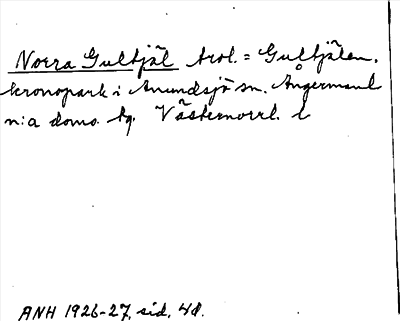 Norra Gultjäl trol. = Gultjälen,
kronopark i Anundsjö sn. Ångermanl
n:a doms. tg. Västernorrl. l
ANH 1926-27, sid. 48.